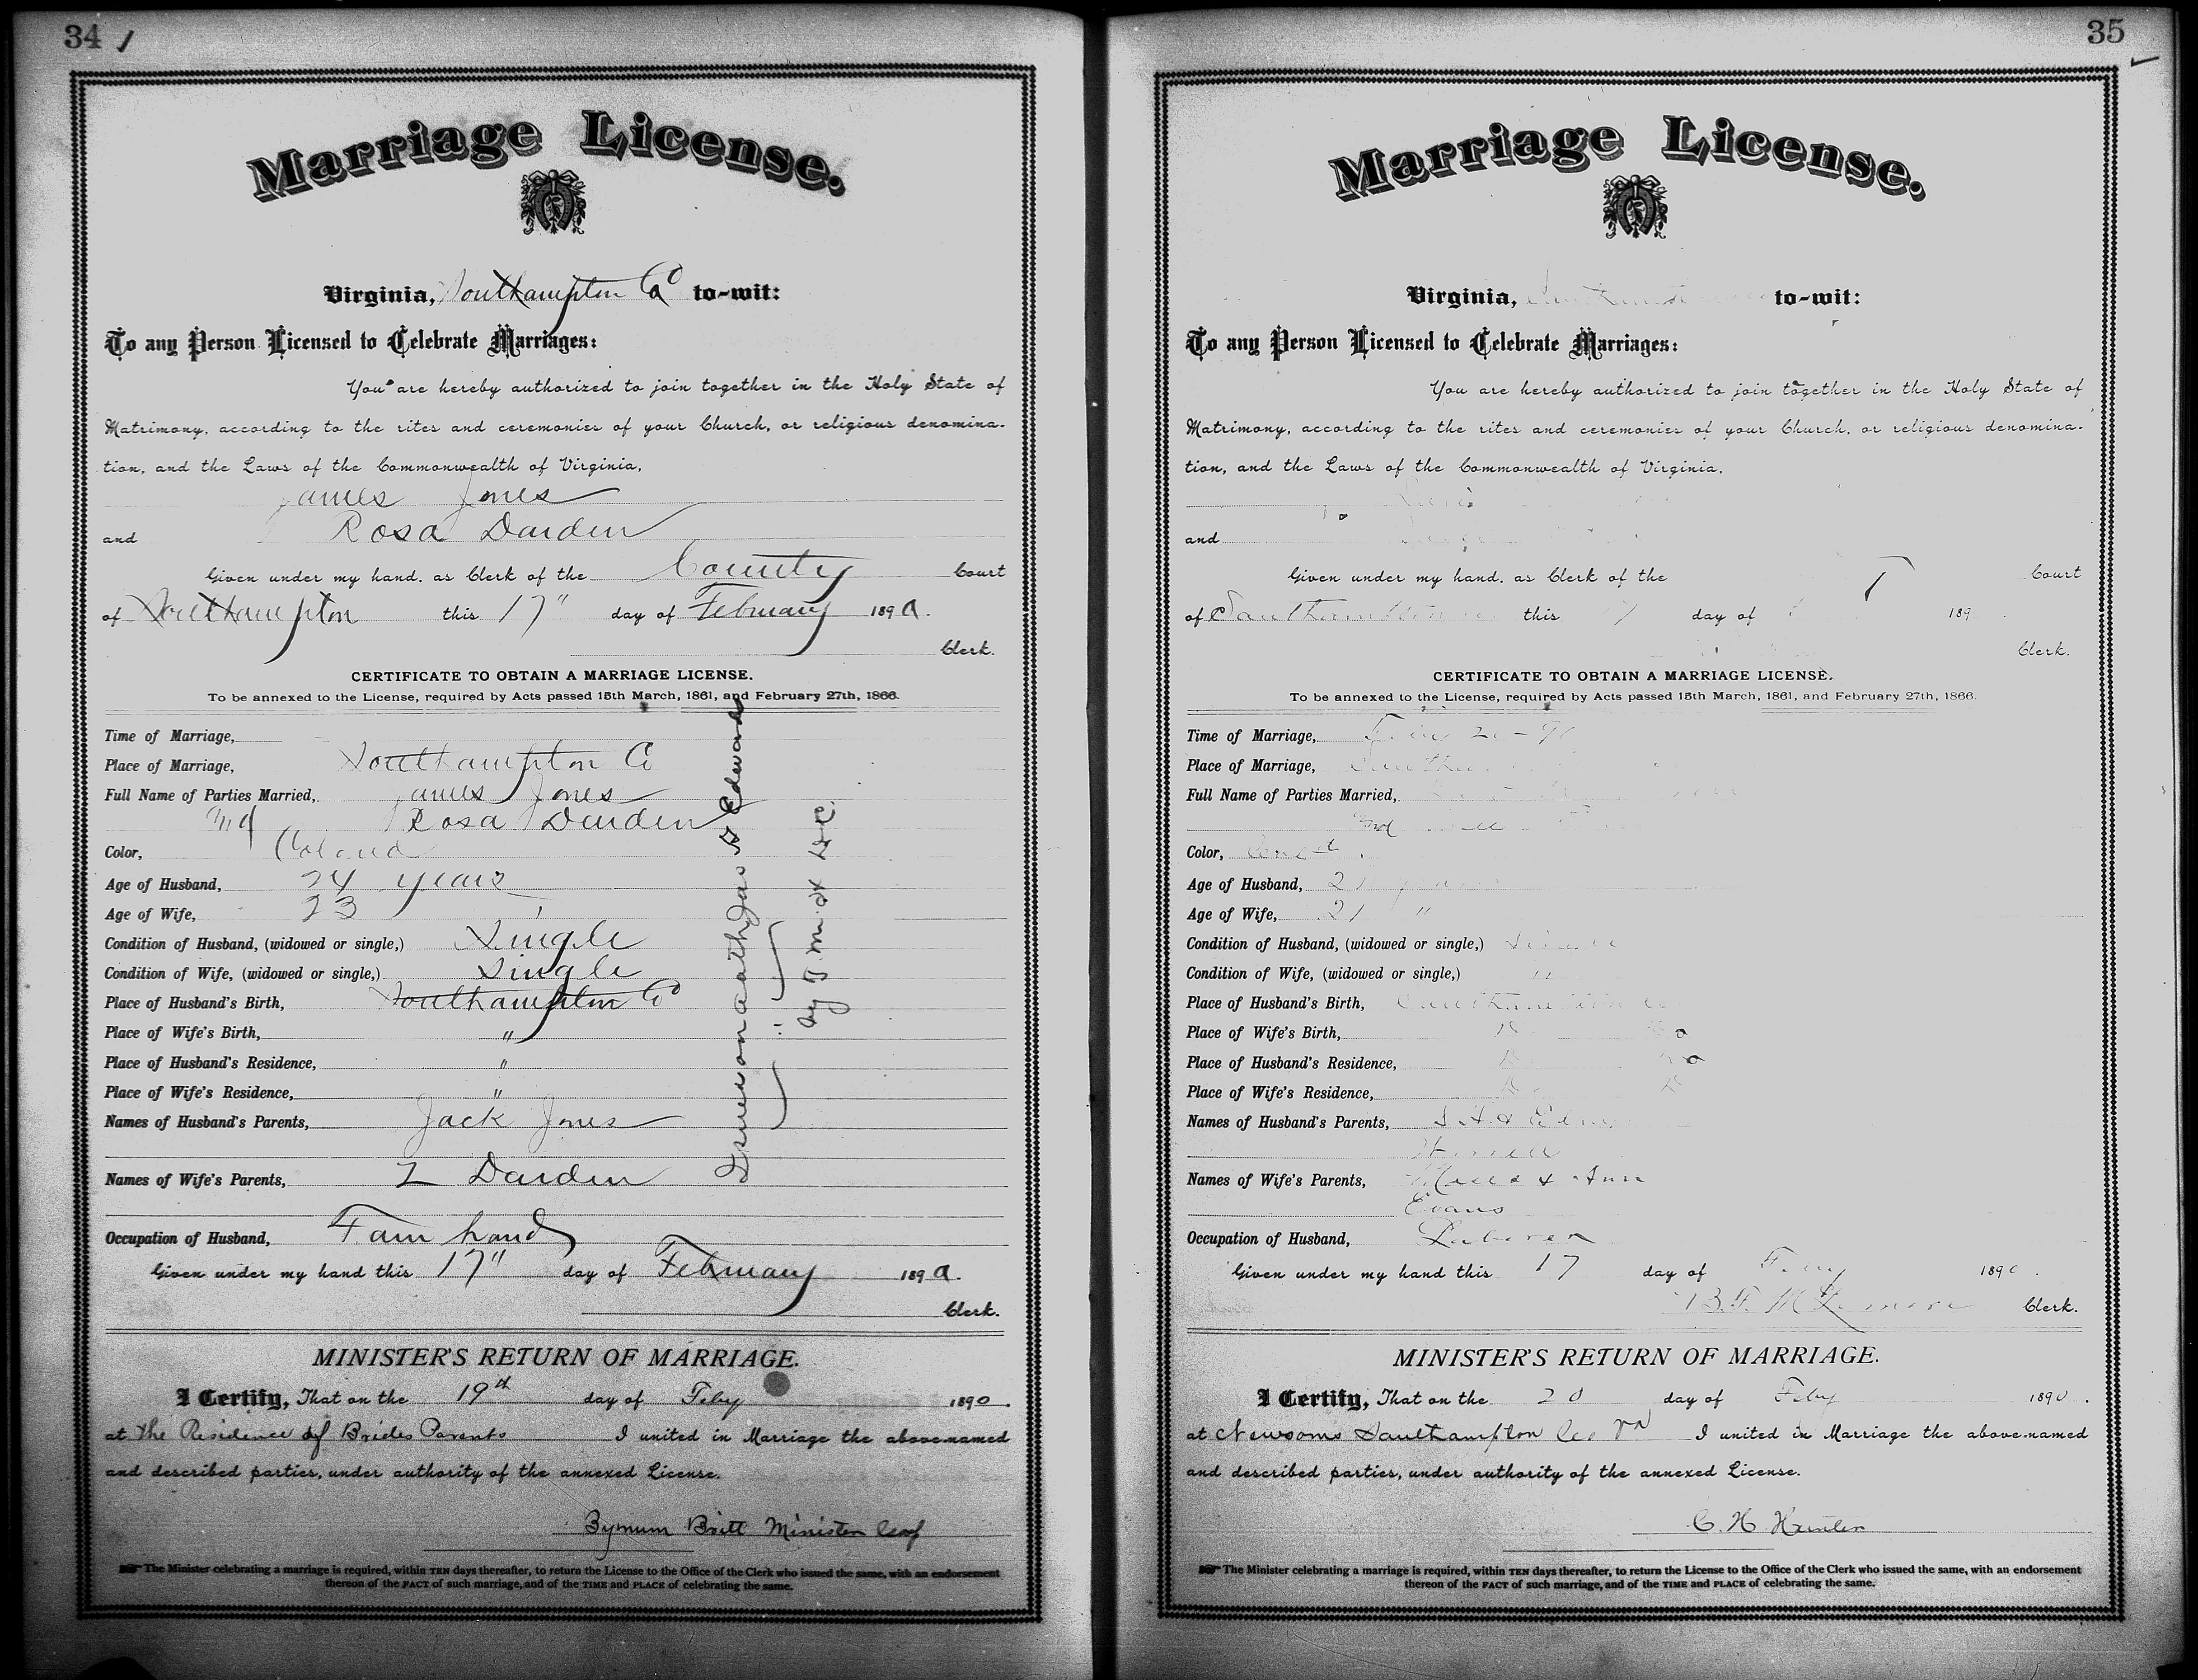 34
Marriage License.
Virginia, Southampton Co to-wit:
To any Person Licensed to Celebrate Marriages:
You are hereby authorized to join together in the Holy State of
Matrimony, according to the rites and ceremonies of your Church, or religious denomina-
tion, and the Laws of the Commonwealth of Virginia,
James Jones
and Rosa Darden
Given under my hand, as Clerk of the County Court
of Southampton this 17" day of February 1890.
Clerk.
CERTIFICATE TO OBTAIN A MARRIAGE LICENSE.
To be annexed to the License, required by Acts passed 15th March, 1861, and February 27th, 1866.
Time of Marriage,
Place of Marriage, Southampton Co
Full Name of Parties Married, James Jones
and Rosa Darden
Color, Colored
Age of Husband, 24 years
Age of Wife, 23 "
Condition of Husband, (widowed or single,) Single
Condition of Wife, (widowed or single,) Single
Place of Husband's Birth, Southampton Co
Place of Wife's Birth, "
Place of Husband's Residence, "
Place of Wife's Residence, "
Names of Husband's Parents, Jack Jones
Names of Wife's Parents, Z Darden
Occupation of Husband, Farm hand
Given under my hand this 17" day of February 1890.
Clerk.
Edwards
MINISTER'S RETURN OF MARRIAGE.
I Certify, That on the 19th day of Feby 1890.
at The Residence of Brides Parents I united in Marriage the above-named
and described parties, under authority of the annexed License.
Bynum Britt Minister
The Minister celebrating a marriage is required, within TEN days thereafter, to return the License to the Office of the Clerk who issued the same, with an endorsement
thereon of the FACT of such marriage, and of the TIME and PLACE of celebrating the same.
35
Marriage License.
Virginia, to-wit:
To any Person Licensed to Celebrate Marriages:
You are hereby authorized to join together in the Holy State of
Matrimony, according to the rites and ceremonies of your Church, or religious denomina-
tion, and the Laws of the Commonwealth of Virginia,
and
Given under my hand, as Clerk of the Court
of Southampton this day of 189
Clerk.
CERTIFICATE TO OBTAIN A MARRIAGE LICENSE.
To be annexed to the License, required by Acts passed 15th March, 1861, and February 27th, 1866.
Time of Marriage, Feby 20-90
Place of Marriage,
Full Name of Parties Married,
and
Color,
Age of Husband, 21 years
Age of Wife, 21 "
Condition of Husband, (widowed or single,) Single
Condition of Wife, (widowed or single,) "
Place of Husband's Birth, Southampton Co
Place of Wife's Birth,
Place of Husband's Residence,
Place of Wife's Residence,
Names of Husband's Parents,
Names of Wife's Parents, & Ann
Evans
Occupation of Husband, Laborer
Given under my hand this 17 day of Feby 1890.
B.F. McLemore Clerk.
MINISTER'S RETURN OF MARRIAGE.
I Certify, That on the 20 day of Feby 1890.
at Newsoms Southampton Co Va I united in Marriage the above-named
and described parties, under authority of the annexed License.
C. H. Hunter
The Minister celebrating a marriage is required, within TEN days thereafter, to return the License to the Office of the Clerk who issued the same, with an endorsement
thereon of the FACT of such marriage, and of the TIME and PLACE of celebrating the same.